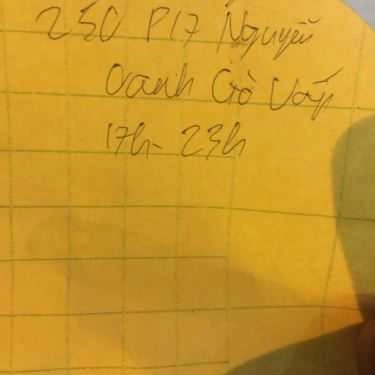 250 P17 Nguyễn
Oanh Gò Vấp
17h - 23h